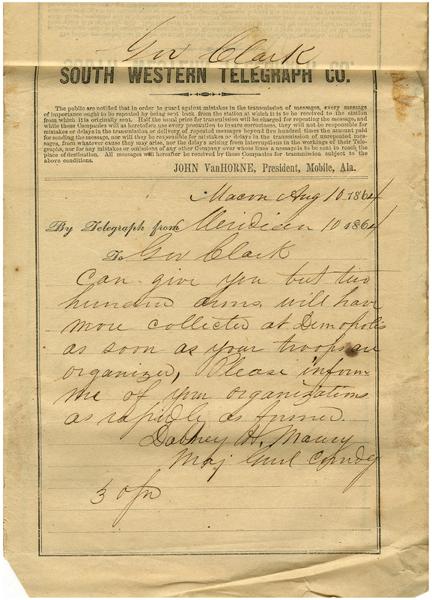 Gov Clark
SOUTH WESTERN TELEGRAPH CO.
The public are notified that in order to guard against mistakes in the transmission of messages, every message
of importance ought to be repeated by being sent back from the station at which it is to be received to the station
from which it is originally sent. Half the usual price for transmission will be charged for repeating the message, and
while these Companies will as heretofore use every precaution to insure correctness, they will not be responsible for
mistakes or delays in the transmission or delivery of repeated messages beyond five hundred times the amount paid
for sending the message, nor will they be responsible for mistakes or delays in the transmission of unrepeated mes-
sages, from whatever cause they may arise, nor for delays arising from interruptions in the workings of their Tele-
graphs, nor for any mistakes or omissions of any other Company over whose lines a message is to be sent to reach the
place of destination. All messages will hereafter be received by these Companies for transmission subject to the
above conditions.
JOHN VanHORNE, President, Mobile, Ala.
Macon Aug 10 1864
By Telegraph from Meridian 10 1864
To Gov Clark
Can give you but two
hundred arms. will have
more collected at Demopolis
as soon as your troops are
organized, Please inform
me of your organizations
as rapidly as formed.
Dabney H. Maury
Maj Genl Comdg